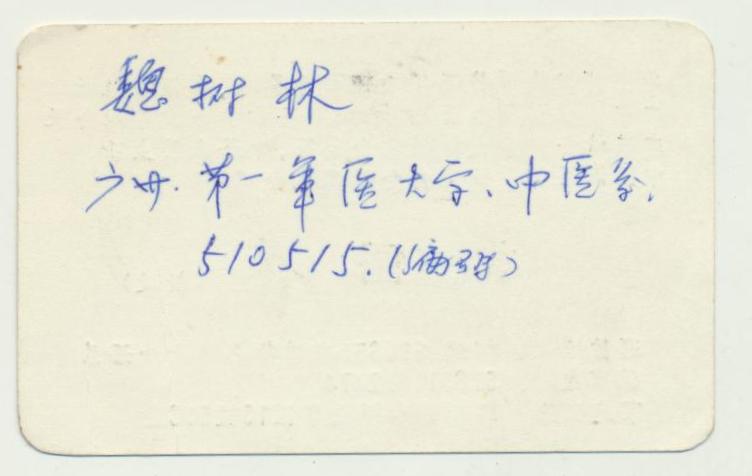 魏树林
广州.第一军医大学、中医系.
510515.(邮编)